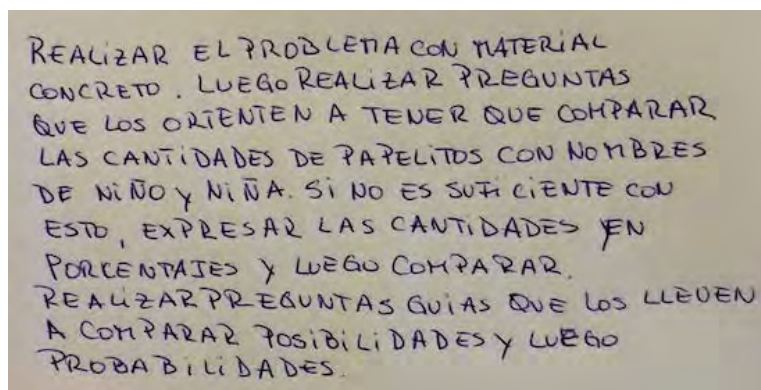 REALIZAR EL PROBLEMA CON MATERIAL
CONCRETO. LUEGO REALIZAR PREGUNTAS
QUE LOS ORIENTEN A TENER QUE COMPARAR
LAS CANTIDADES DE PAPELITOS CON NOMBRES
DE NIÑO Y NIÑA. SI NO ES SUFICIENTE CON
ESTO, EXPRESAR LAS CANTIDADES EN
PORCENTAJES Y LUEGO COMPARAR.
REALIZAR PREGUNTAS GUIAS QUE LOS LLEVEN
A COMPARAR POSIBILIDADES Y LUEGO
PROBABILIDADES.